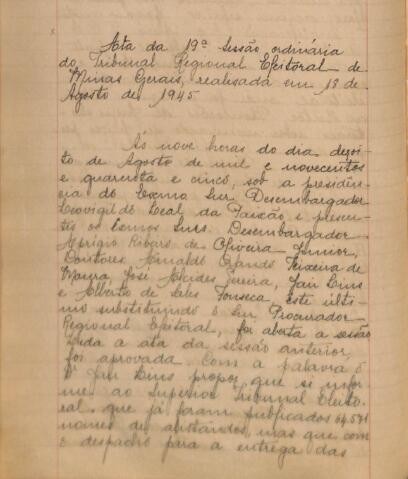 Acta da 19ª sessão ordinária
do Tribunal Regional Eleitoral de
Minas Gerais, realisada em 18 de
Agosto de 1945
Ás nove horas do dia dezoi-
to de Agosto de mil e novecentos
e quarenta e cinco, sob a presiden-
cia do Exmo Snr Desembargador
Leovigildo Leal da Paixão e presen-
tes os Exmos Snrs. Desembargador
Aprigio Ribeiro de Oliveira Junior,
Doutores Arnaldo Teixeira de
Moura José Alcides Pereira, Jair Lins
e Alberto de Sales Fonseca, este ulti-
mo substituindo o Snr Procurador
Regional Eleitoral, foi aberta a sessão
Lida a ata da sessão anterior,
foi aprovada. Com a palavra o
Dr Jair Lins propoz que se infor
me ao Superior Tribunal Eleito-
ral que já foram publicados
nomes de alistandos, mas que com
o despacho para a entrega das